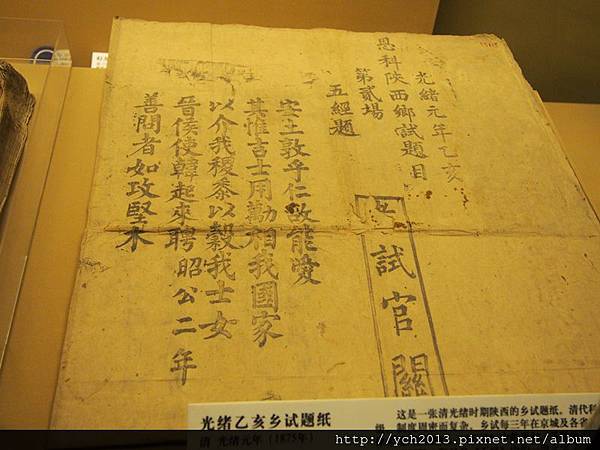 光緒元年乙亥
恩科陝西鄉試題目
第貳場
五經題
安土敦乎仁故能愛
其惟吉士用勱相我國家
以介我稷黍以穀我士女
晉侯使韓起來聘昭公二年
善問者如攻堅木
試官關
光绪乙亥乡试题纸
清 光绪元年（1875年）
这是一张清光绪时期陕西的乡试题纸。清代科
制度周密而复杂。乡试每三年在京城及各省
级
http://ych2013.pixnet.net/album